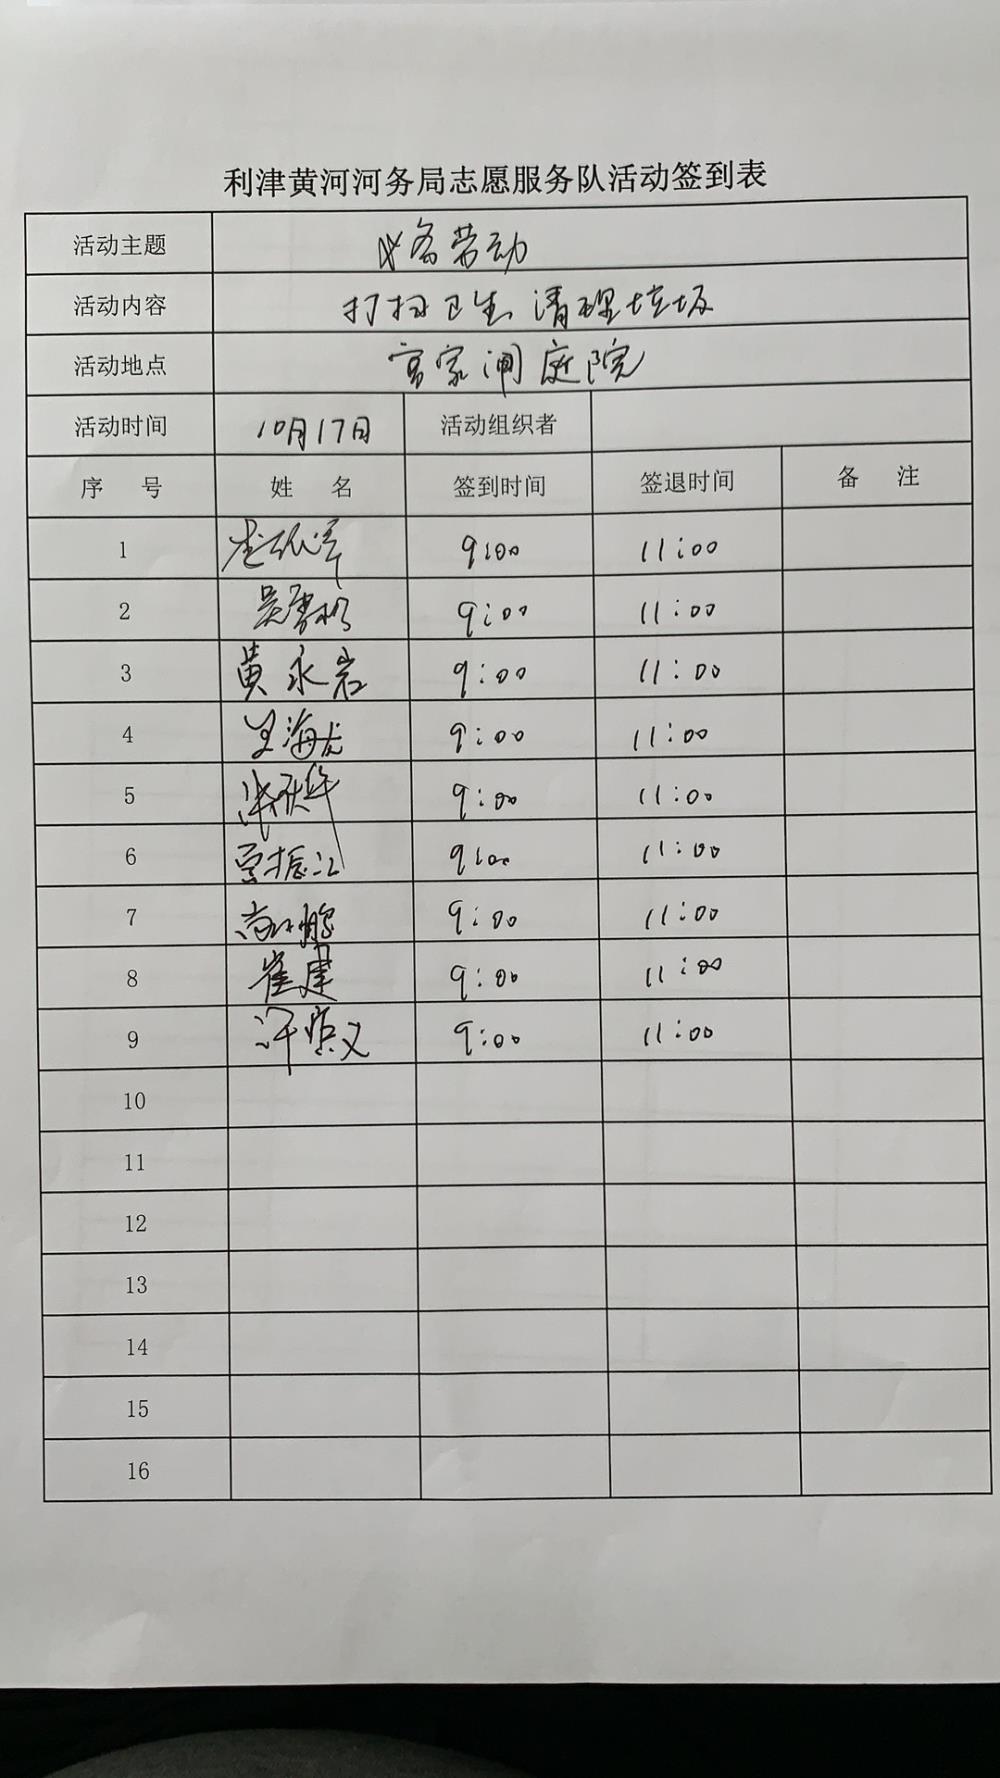 利津黄河河务局志愿服务队活动签到表
活动主题 义务劳动
活动内容 打扫卫生 清理垃圾
活动地点 宫家闸庭院
活动时间 10月17日 活动组织者
序 号 姓 名 签到时间 签退时间 备 注
1 9:00 11:00
2 9:00 11:00
3 黄永岩 9:00 11:00
4 王海龙 9:00 11:00
5 9:00 11:00
6 贾振江 9:00 11:00
7 9:00 11:00
8 崔建 9:00 11:00
9 9:00 11:00
10
11
12
13
14
15
16